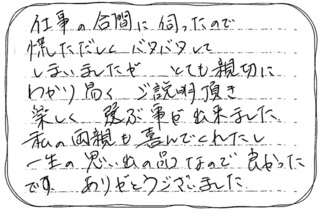 仕事の合間に伺ったので
慌ただしく バタバタして
しまいましたが とても親切に
わかり易く ご説明頂き
楽しく 選ぶ事が出来ました
私の両親も喜んでくれたし
一生の思い出の品なので良かった
です ありがとうございました